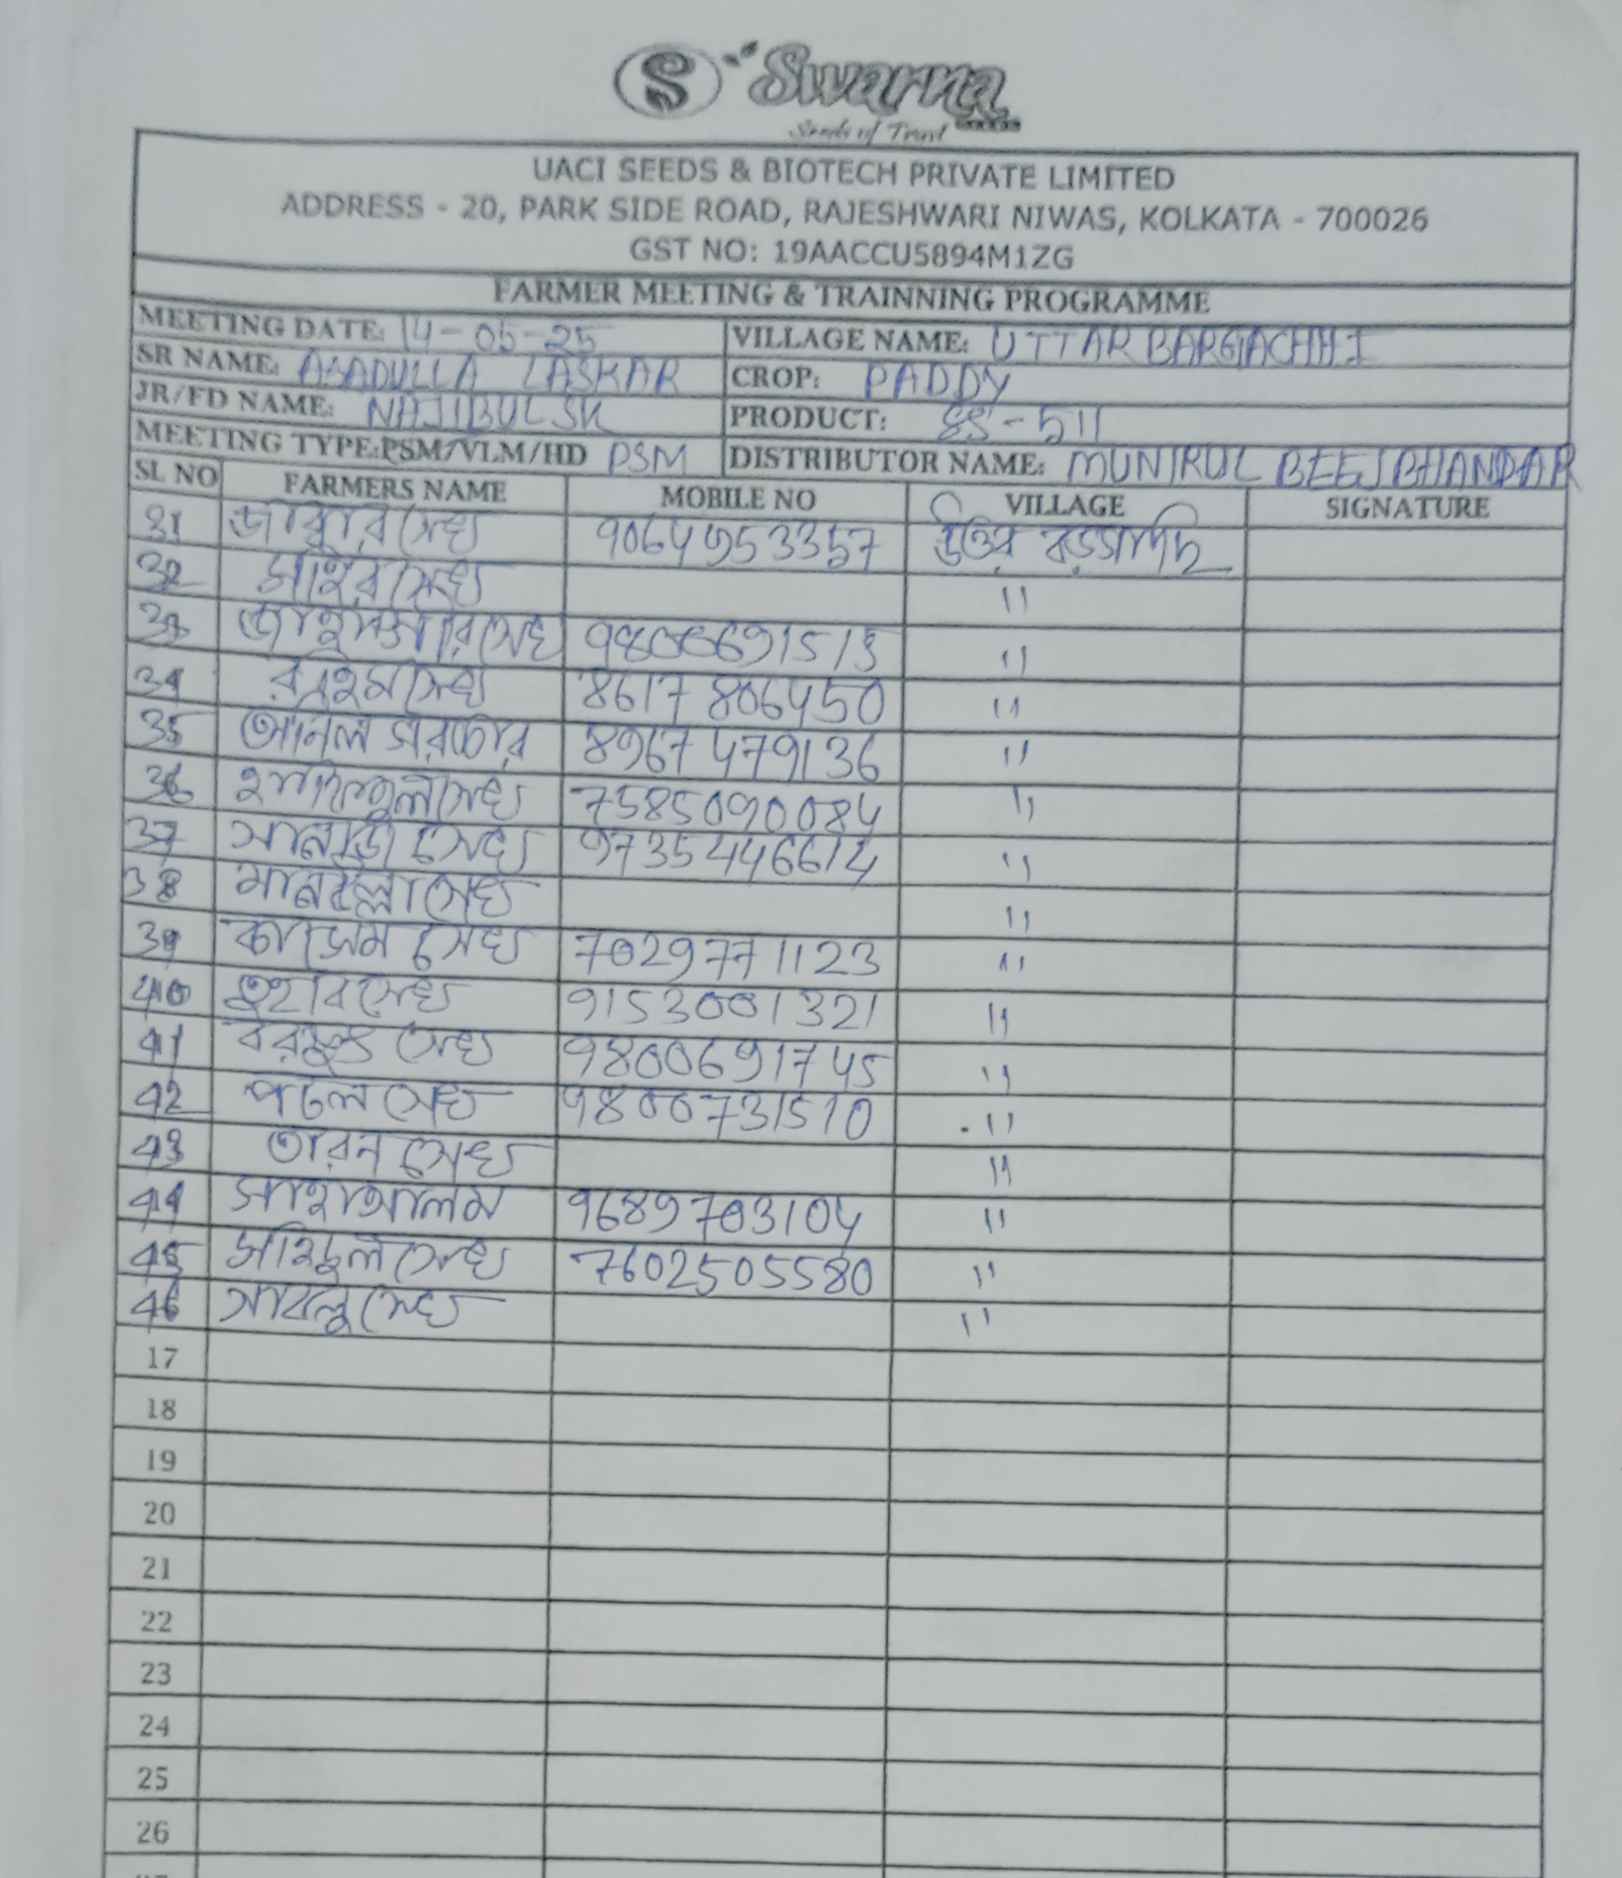 S Swarna
Seeds of Trust
UACI SEEDS & BIOTECH PRIVATE LIMITED
ADDRESS - 20, PARK SIDE ROAD, RAJESHWARI NIWAS, KOLKATA - 700026
GST NO: 19AACCU5894M1ZG
FARMER MEETING & TRAINNING PROGRAMME
MEETING DATE: 14-05-25 VILLAGE NAME: UTTAR BARGACHHI
SR NAME: ASADULLA LASKAR CROP: PADDY
JR/FD NAME: NAJIBUL SK PRODUCT: SS-511
MEETING TYPE:PSM/VLM/HD PSM DISTRIBUTOR NAME: MUNIRUL BEEJ BHANDAR
SL NO FARMERS NAME MOBILE NO VILLAGE SIGNATURE
31 জাব্বার সেখ 9064953357 উত্তর বড়গাছি
32 সাইব সেখ "
33 সেখ 9800691513 "
34 রহিম সেখ 8617806450 "
35 আনল সরদার 8967479136 "
36 সেখ 7585090084 "
37 সেখ 9735446614 "
38 সেখ "
39 কাসেম সেখ 7029771123 "
40 সেখ 9153001321 "
41 সেখ 9800691745 "
42 পটল সেখ 9800731510 "
43 তারন সেখ "
44 সাহাআলম 9689703104 "
45 সহিদুল সেখ 7602505580 "
46 সাবলু সেখ "
17
18
19
20
21
22
23
24
25
26